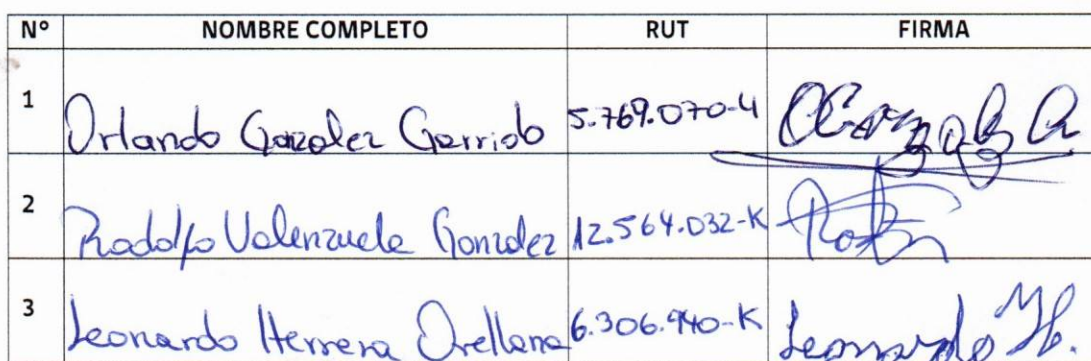 Nº NOMBRE COMPLETO RUT FIRMA
1 Orlando Gonzalez Garrido 5.769.070-4
2 Rodolfo Valenzuela Gonzalez 12.564.032-K
3 Leonardo Herrera Orellana 6.306.940-K Leonardo H.